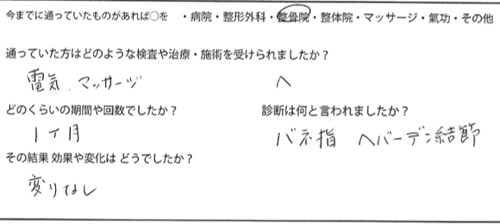 今までに通っていたものがあれば○を ・病院・整形外科・整骨院・整体院・マッサージ・氣功・その他
通っていた方はどのような検査や治療・施術を受けられましたか？
電気、マッサージ ヘ
どのくらいの期間や回数でしたか？ 診断は何と言われましたか？
1ヶ月 バネ指 ヘバーデン結節
その結果 効果や変化は どうでしたか？
変りなし